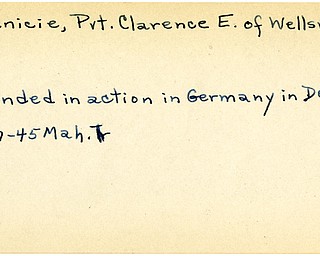 nicie, Pvt. Clarence E. of Wells
nded in action in Germany in D
-45 Mah. Tr